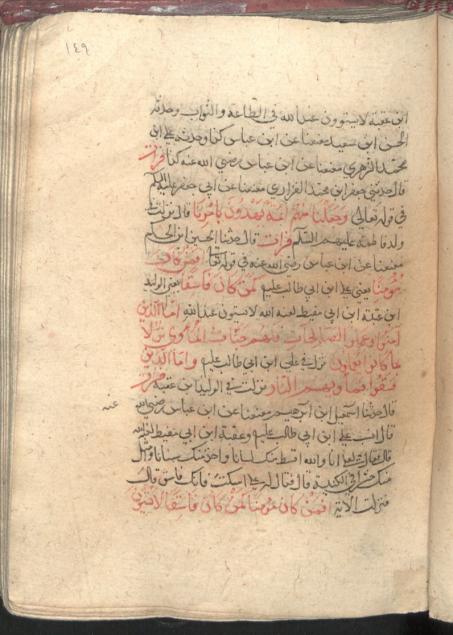 ١٤٩
ابن عقبة لا يستوون عند الله في الطاعة والثواب وحدثه
الحسن ابن سعيد معنعنا عن ابن عباس كنا وحدثه علي ابن
محمد الزهري معنعنا عن ابن عباس رضي الله عنه كنا فرات
قال حدثني جعفر ابن محمد الفزاري معنعنا عن ابي جعفر عليه السلم
في قوله تعالى وجعلنا منهم ائمة يهدون بامرنا قال نزلت في
ولد فاطمة عليهم السلم فرات قال حدثنا الحسين ابن الحكم
معنعنا عن ابن عباس رضي الله عنه في قوله افمن كان
مؤمنا يعني علي ابن ابي طالب عليم كمن كان فاسقا يعني الوليد
ابن عقبة ابن ابي معيط لعنه الله لا يستون عند الله اما الذين
آمنوا وعملوا الصالحات فلهم جنات الماوى نزلا
بما كانوا يعملون نزلت في علي ابن ابي طالب عليم واما الذين
فسقوا فماويهم النار نزلت في الوليد ابن عقبة فرات
قال حدثنا اسمعيل ابن ابرهيم معنعنا عن ابن عباس رضي الله عنه
قال علي ابن ابي طالب عليم وعقبة ابن ابي معيط
انا والله ابسط منك لسانا واحد منك سنانا وامثل
منك في الكتيبة قال فقال له علي اسكت فانك فاسق قال
فنزلت الآية افمن كان مؤمنا كمن كان فاسقا لا يستون